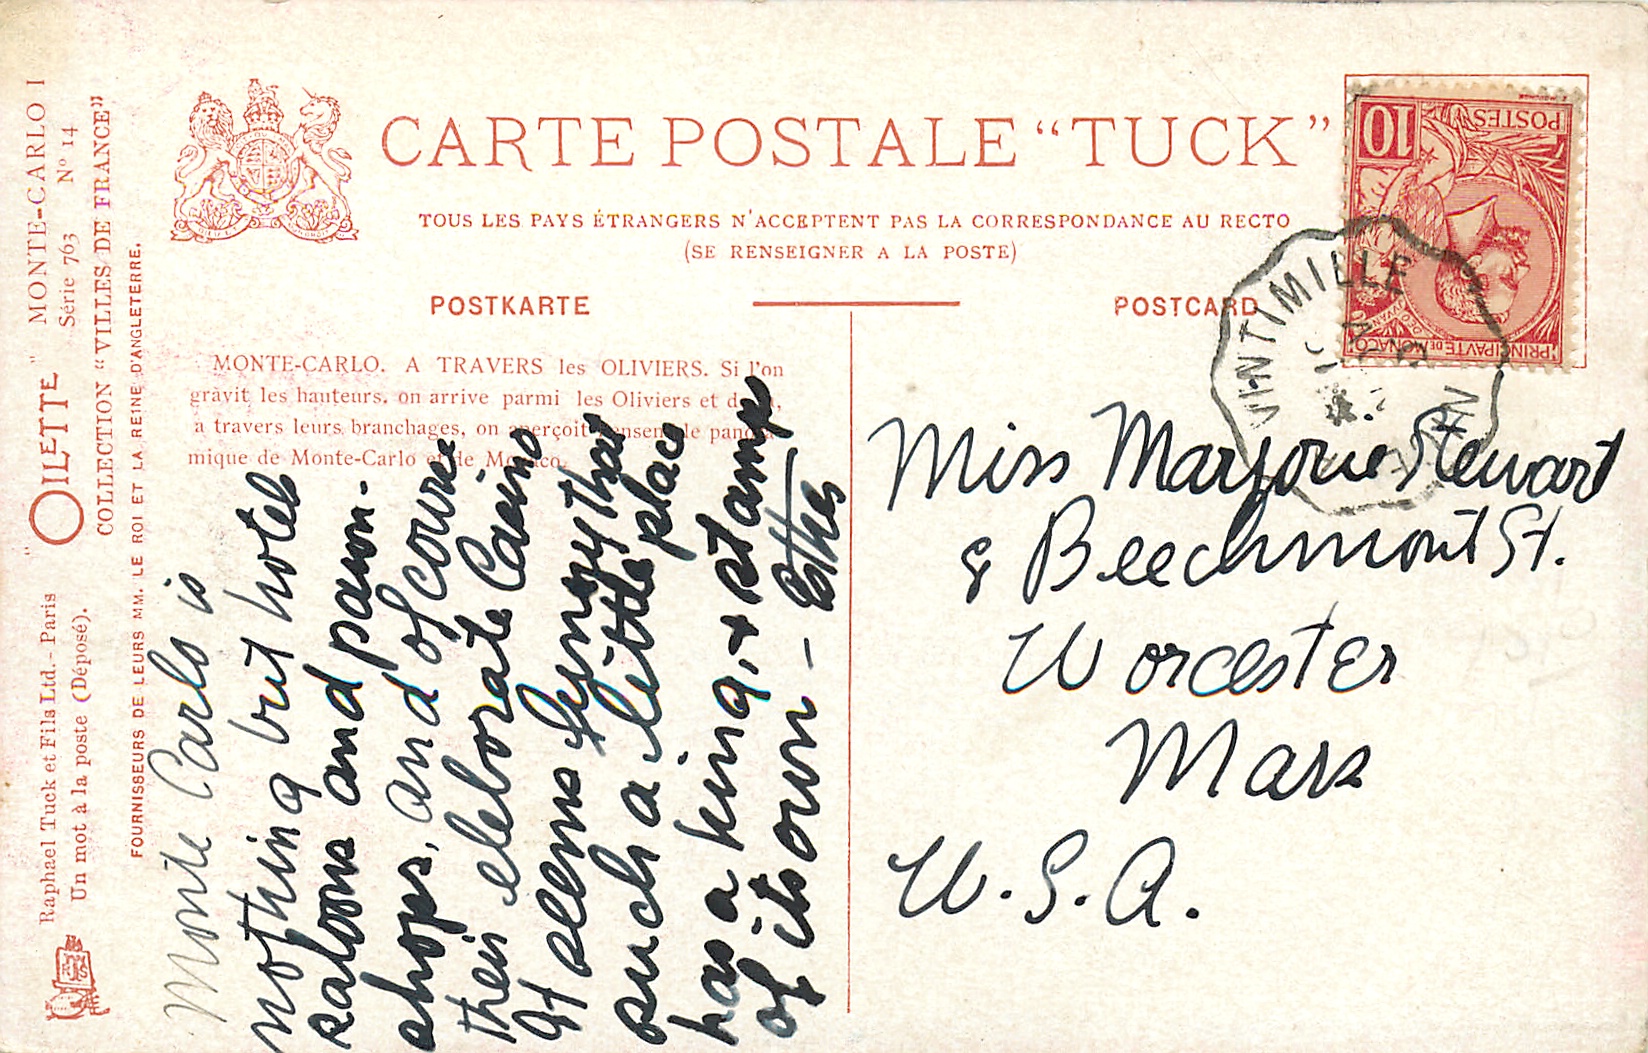 CARTE POSTALE "TUCK"
TOUS LES PAYS ÉTRANGERS N'ACCEPTENT PAS LA CORRESPONDANCE AU RECTO
(SE RENSEIGNER A LA POSTE)
POSTKARTE
POSTCARD
MONTE-CARLO. A TRAVERS les OLIVIERS. Si l'on
gravit les hauteurs, on arrive parmi les Oliviers et de
a travers leurs branchages, on aperçoit l'ensemble pano
mique de Monte-Carlo et de Monaco.
"OILETTE" MONTE-CARLO I
Série 763 No 14
COLLECTION "VILLES DE FRANCE"
Raphael Tuck et Fils Ltd.- Paris
Un mot à la poste (Déposé).
FOURNISSEURS DE LEURS MM. LE ROI ET LA REINE D'ANGLETERRE.
Monte Carlo is
nothing but hotels
saloons and pawn-
shops, and of course
their elaborate Casino
It seems funny that
such a little place
has a king, + stamps
of its own – Esther
Miss Marjorie Stewart
8 Beechmont St.
Worcester
Mass
U.S.A.
10
POSTES
PRINCIPAUTE DE MONACO
VINTIMILLE